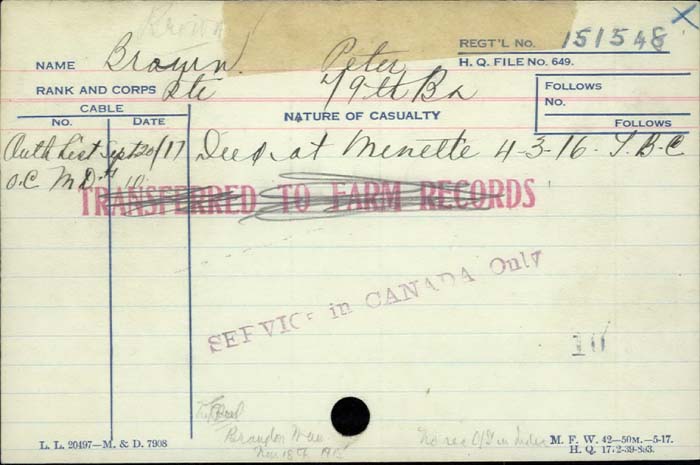 Brown
NAME Brown, Peter REGT'L No. 151548
H. Q. FILE No. 649.
RANK AND CORPS Pte 79th Bn
FOLLOWS
No.
FOLLOWS
CABLE
No. DATE
NATURE OF CASUALTY
Auth List Sept 20/17 Died at Menette 4-3-16. T.B.C
O.C. M.D. # 10
TRANSFERRED TO FARM RECORDS
SERVICE in CANADA Only
10
Brandon Man
Nov 18th 1915
No rec in Index
L. L. 20497—M. & D. 7908
M. F. W. 42—50M.—5-17.
H. Q. 1772-39-893.